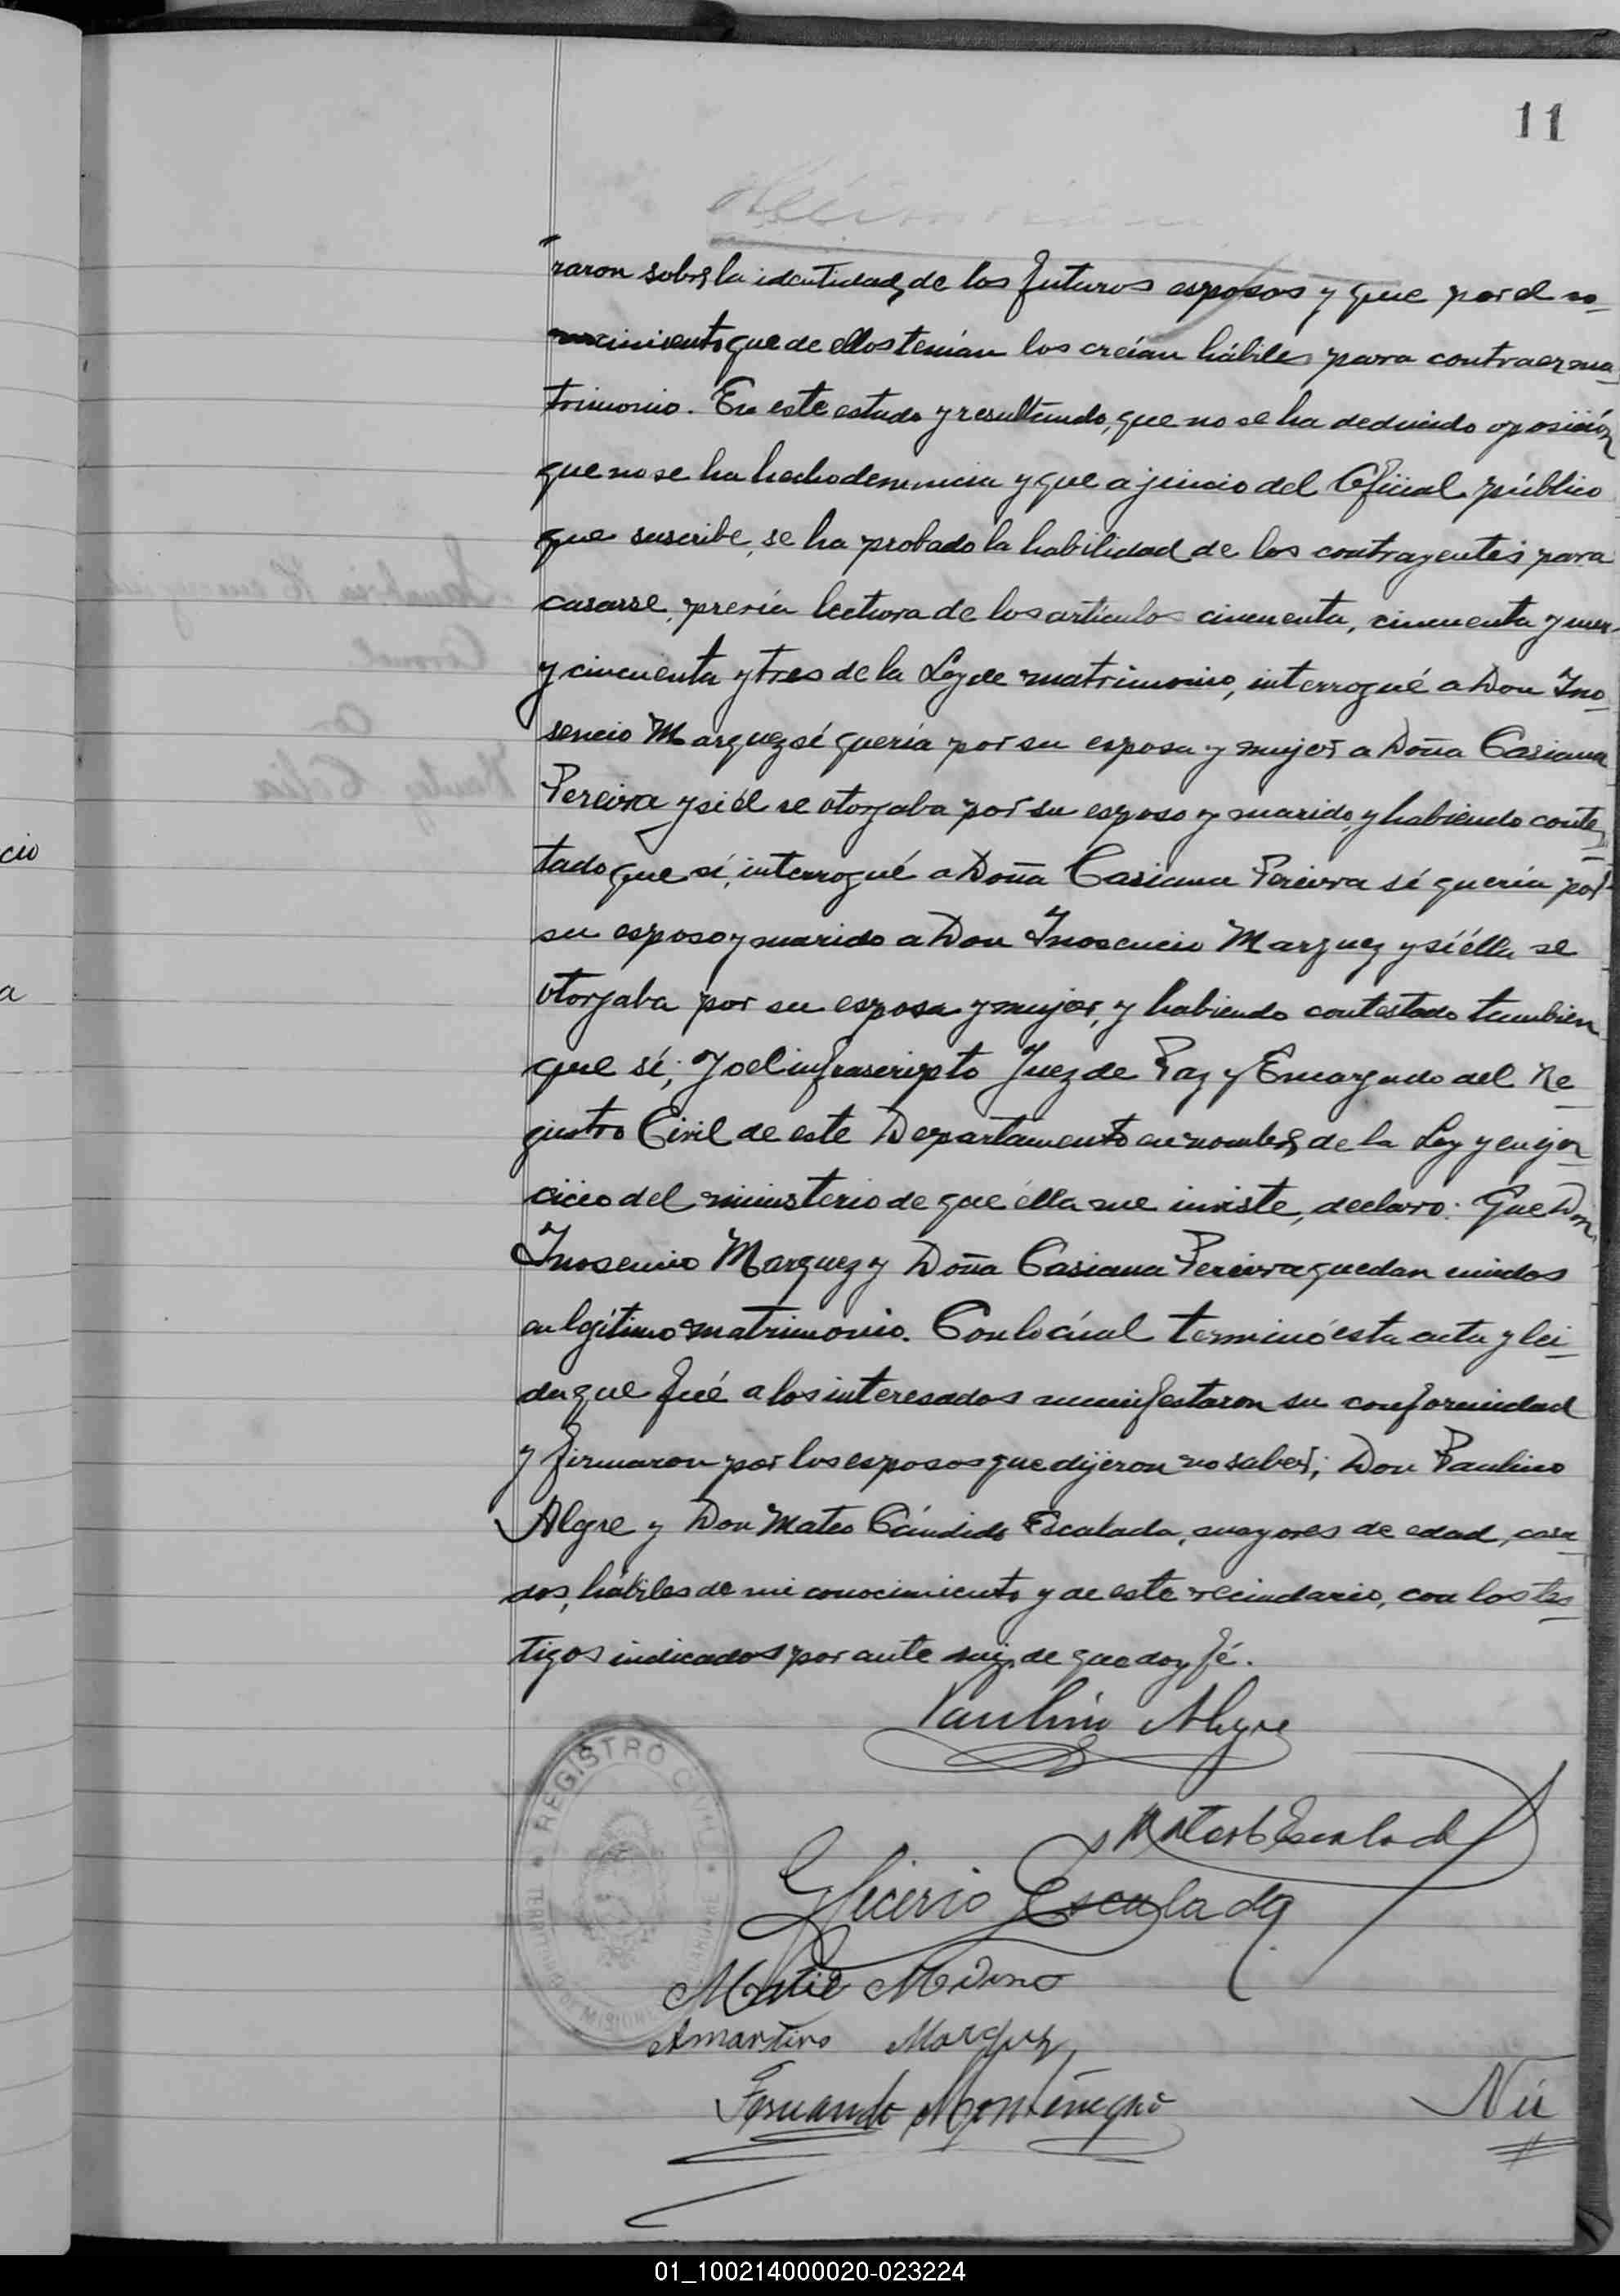 11
raron sobre la identidad, de los futuros esposos y que por el co-
nocimiento que de ellos tenían los creían hábiles para contraer ma-
trimonio. En este estado y resultando, que no se ha deducido oposición
que no se ha hecho denuncia y que a juicio del Oficial público
que suscribe, se ha probado la habilidad de los contrayentes para
casarse, previa lectura de los artículos cincuenta, cincuenta y uno
y cincuenta y tres de la Ley de matrimonio, interrogué a Don Ino-
sencio Marquez sí quería por su esposa y mujer a Doña Casiana
Pereira y si él se otorgaba por su esposo y marido, y habiendo contes-
tado que sí, interrogué a Doña Casiana Pereira sí quería por
su esposo y marido a Don Inosencio Marquez y sí élla se
otorgaba por su esposa y mujer, y habiendo contestado tambien
que sí; Yo el infrascripto Juez de Paz y Encargado del Re-
gistro Civil de este Departamento en nombre de la Ley y en ejer-
cicio del ministerio de que élla me inviste, declaro: Que Don
Inosencio Marquez y Doña Casiana Pereira quedan unidos
en legítimo matrimonio. Con lo cúal terminó esta acta y lei-
da que fué a los interesados manifestaron su conformidad
y firmaron por los esposos que dijeron no saber; Don Paulino
Alegre y Don Mateo Cándido Escalada, mayores de edad, casa-
dos, hábiles de mi conocimiento y de este vecindario, con los tes-
tigos indicados por ante mí, de que doy fé.
Paulino Alegre
Mateo C Escalada
Glicerio Escalada
REGISTRO CIVIL
TERRITORIO DE MISIONES
Amantino Marquez
Fernando Montenegro
cio
a
01_100214000020-023224